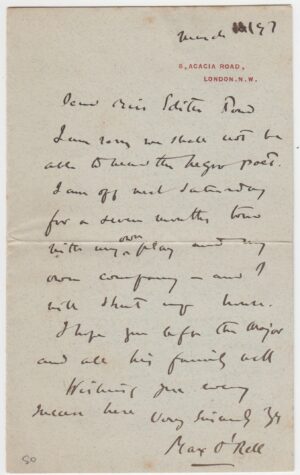 March 18/97
8, ACACIA ROAD,
LONDON. N.W.
Dear Miss Edith Pond
I am sorry we shall not be
able to hear the negro poet.
I am off next Saturday
for a seven months tour
with my own play and my
own company – and I
will shut my house.
I hope you left the Major
and all his family well
Wishing you every
success here Very Sincerely Yrs
Max O'Rell
80